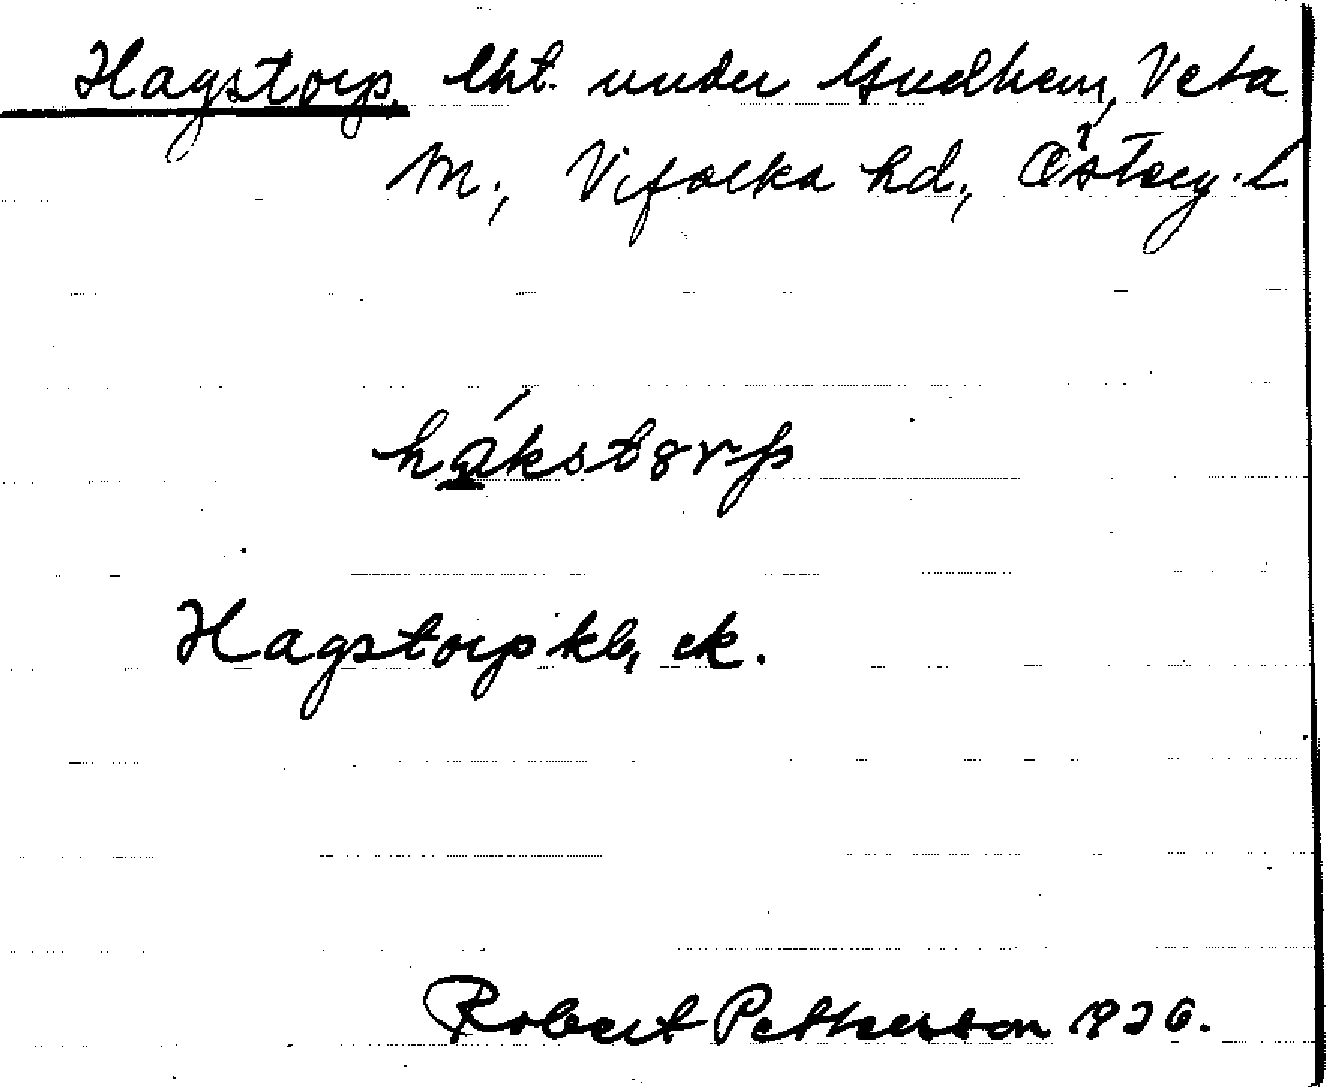 Hagstorp, lht. under Gudhem, Veta
m., Vifolka hd., Östерg. L
hákstorp
Hagstorp kb, ek.
Robert Petterson 1926.